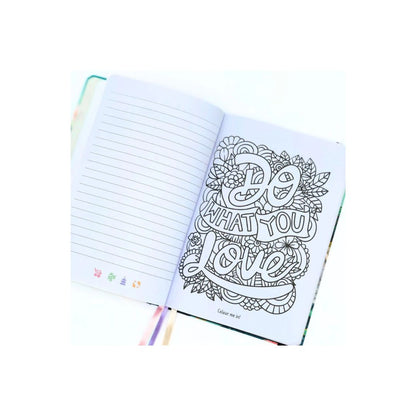 DO
WHAT YOU
LOVE
Colour me in!